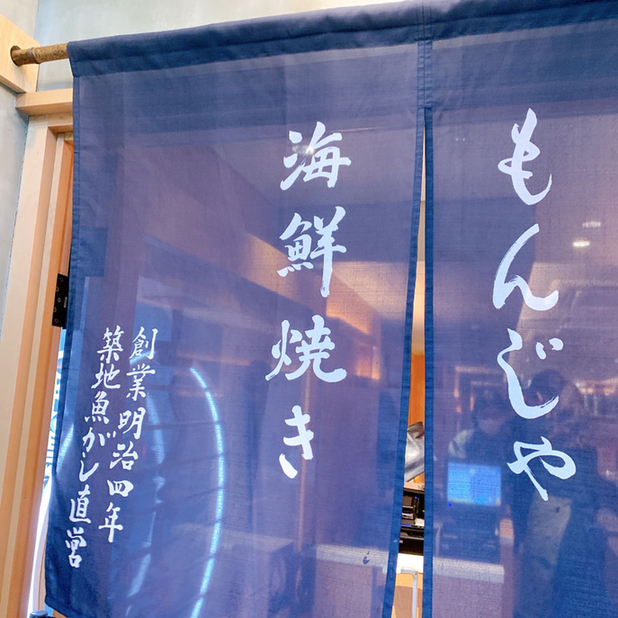 もんじゃ
海鮮焼き
創業明治四年
築地魚がし直営